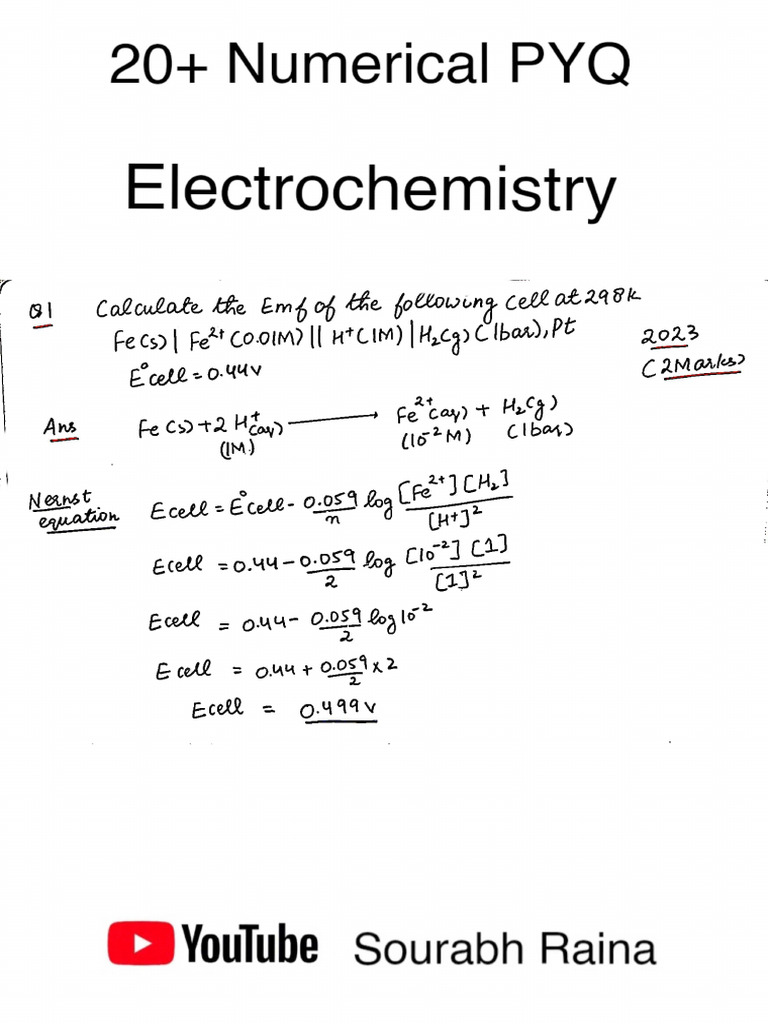 20+ Numerical PYQ
Electrochemistry
Q1 Calculate the Emf of the following cell at 298K
Fe(s) | Fe²⁺(0.01M) || H⁺(1M) | H₂(g) (1bar), Pt
2023
E°cell = 0.44v
(2Marks)
Ans Fe(s) + 2H⁺(aq) ⟶ Fe²⁺(aq) + H₂(g)
(1M) (10⁻²M) (1bar)
Nernst equation
Ecell = E°cell - 0.059/n log [Fe²⁺][H₂]/[H⁺]²
Ecell = 0.44 - 0.059/2 log [10⁻²] [1]/[1]²
Ecell = 0.44 - 0.059/2 log 10⁻²
Ecell = 0.44 + 0.059/2 x 2
Ecell = 0.499v
YouTube Sourabh Raina